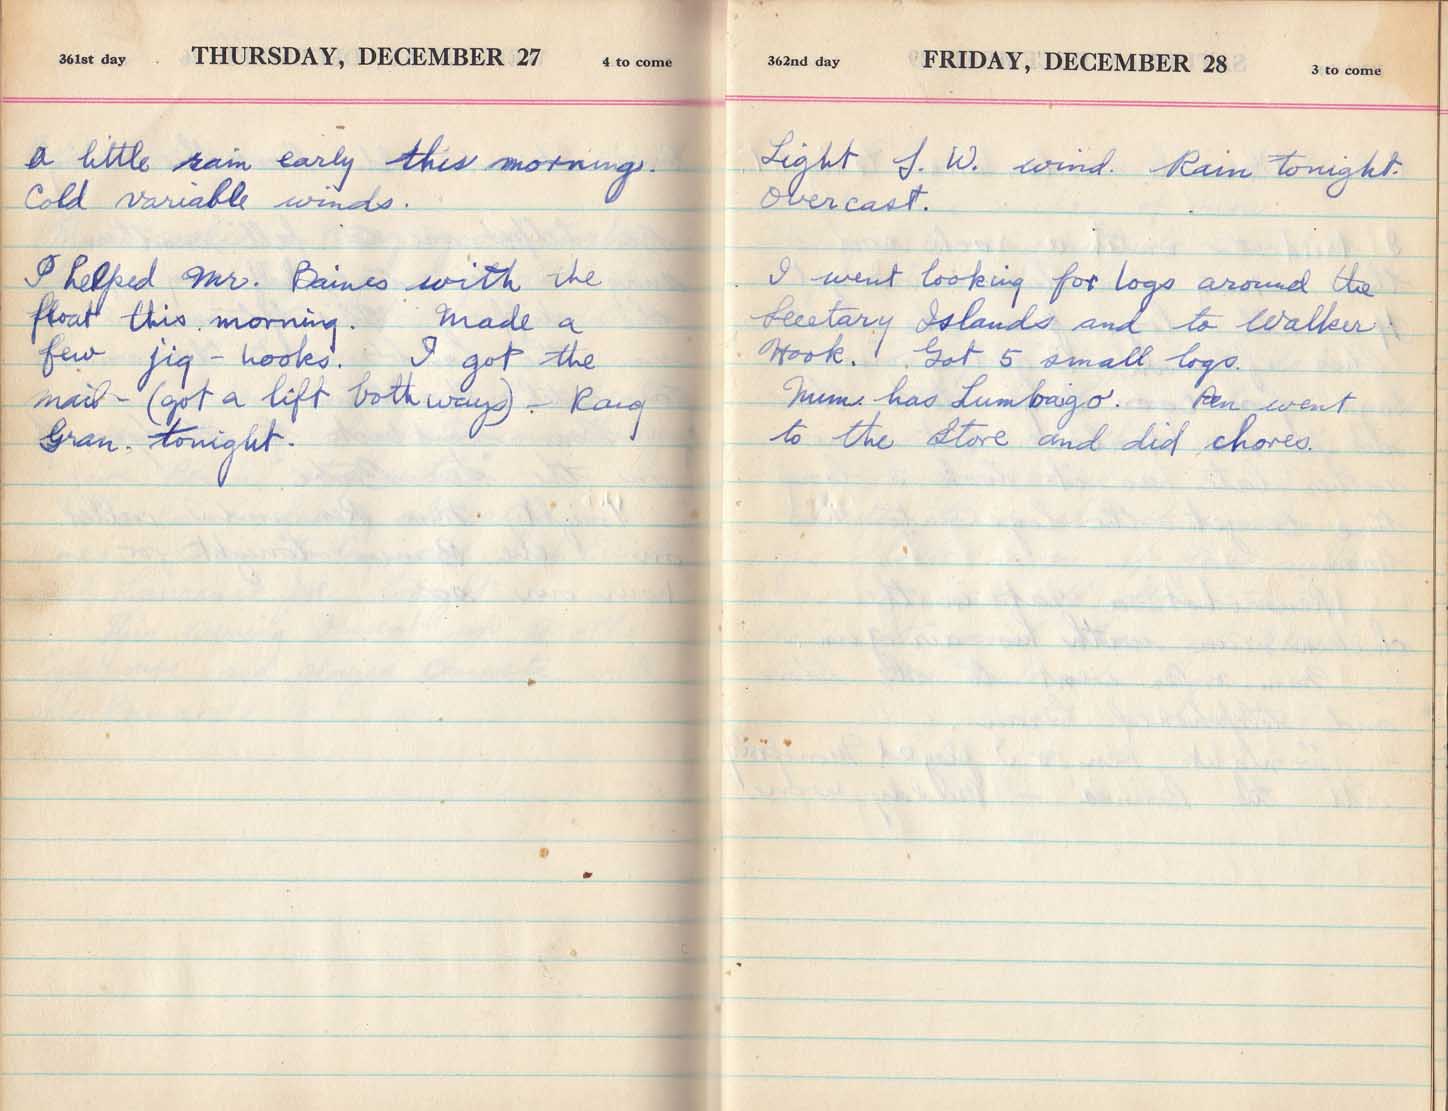 361st day THURSDAY, DECEMBER 27 4 to come
a little rain early this morning.
Cold variable winds.
I helped Mr. Baines with the
float this morning. Made a
few jig-hooks. I got the
mail - (got a lift both ways) - Rang
Gran. tonight.
362nd day FRIDAY, DECEMBER 28 3 to come
Light S. W. wind. Rain tonight.
Overcast.
I went looking for logs around the
Secetary Islands and to Walker
Hook. Got 5 small logs.
Mum has Lumbago. Pen went
to the Store and did chores.